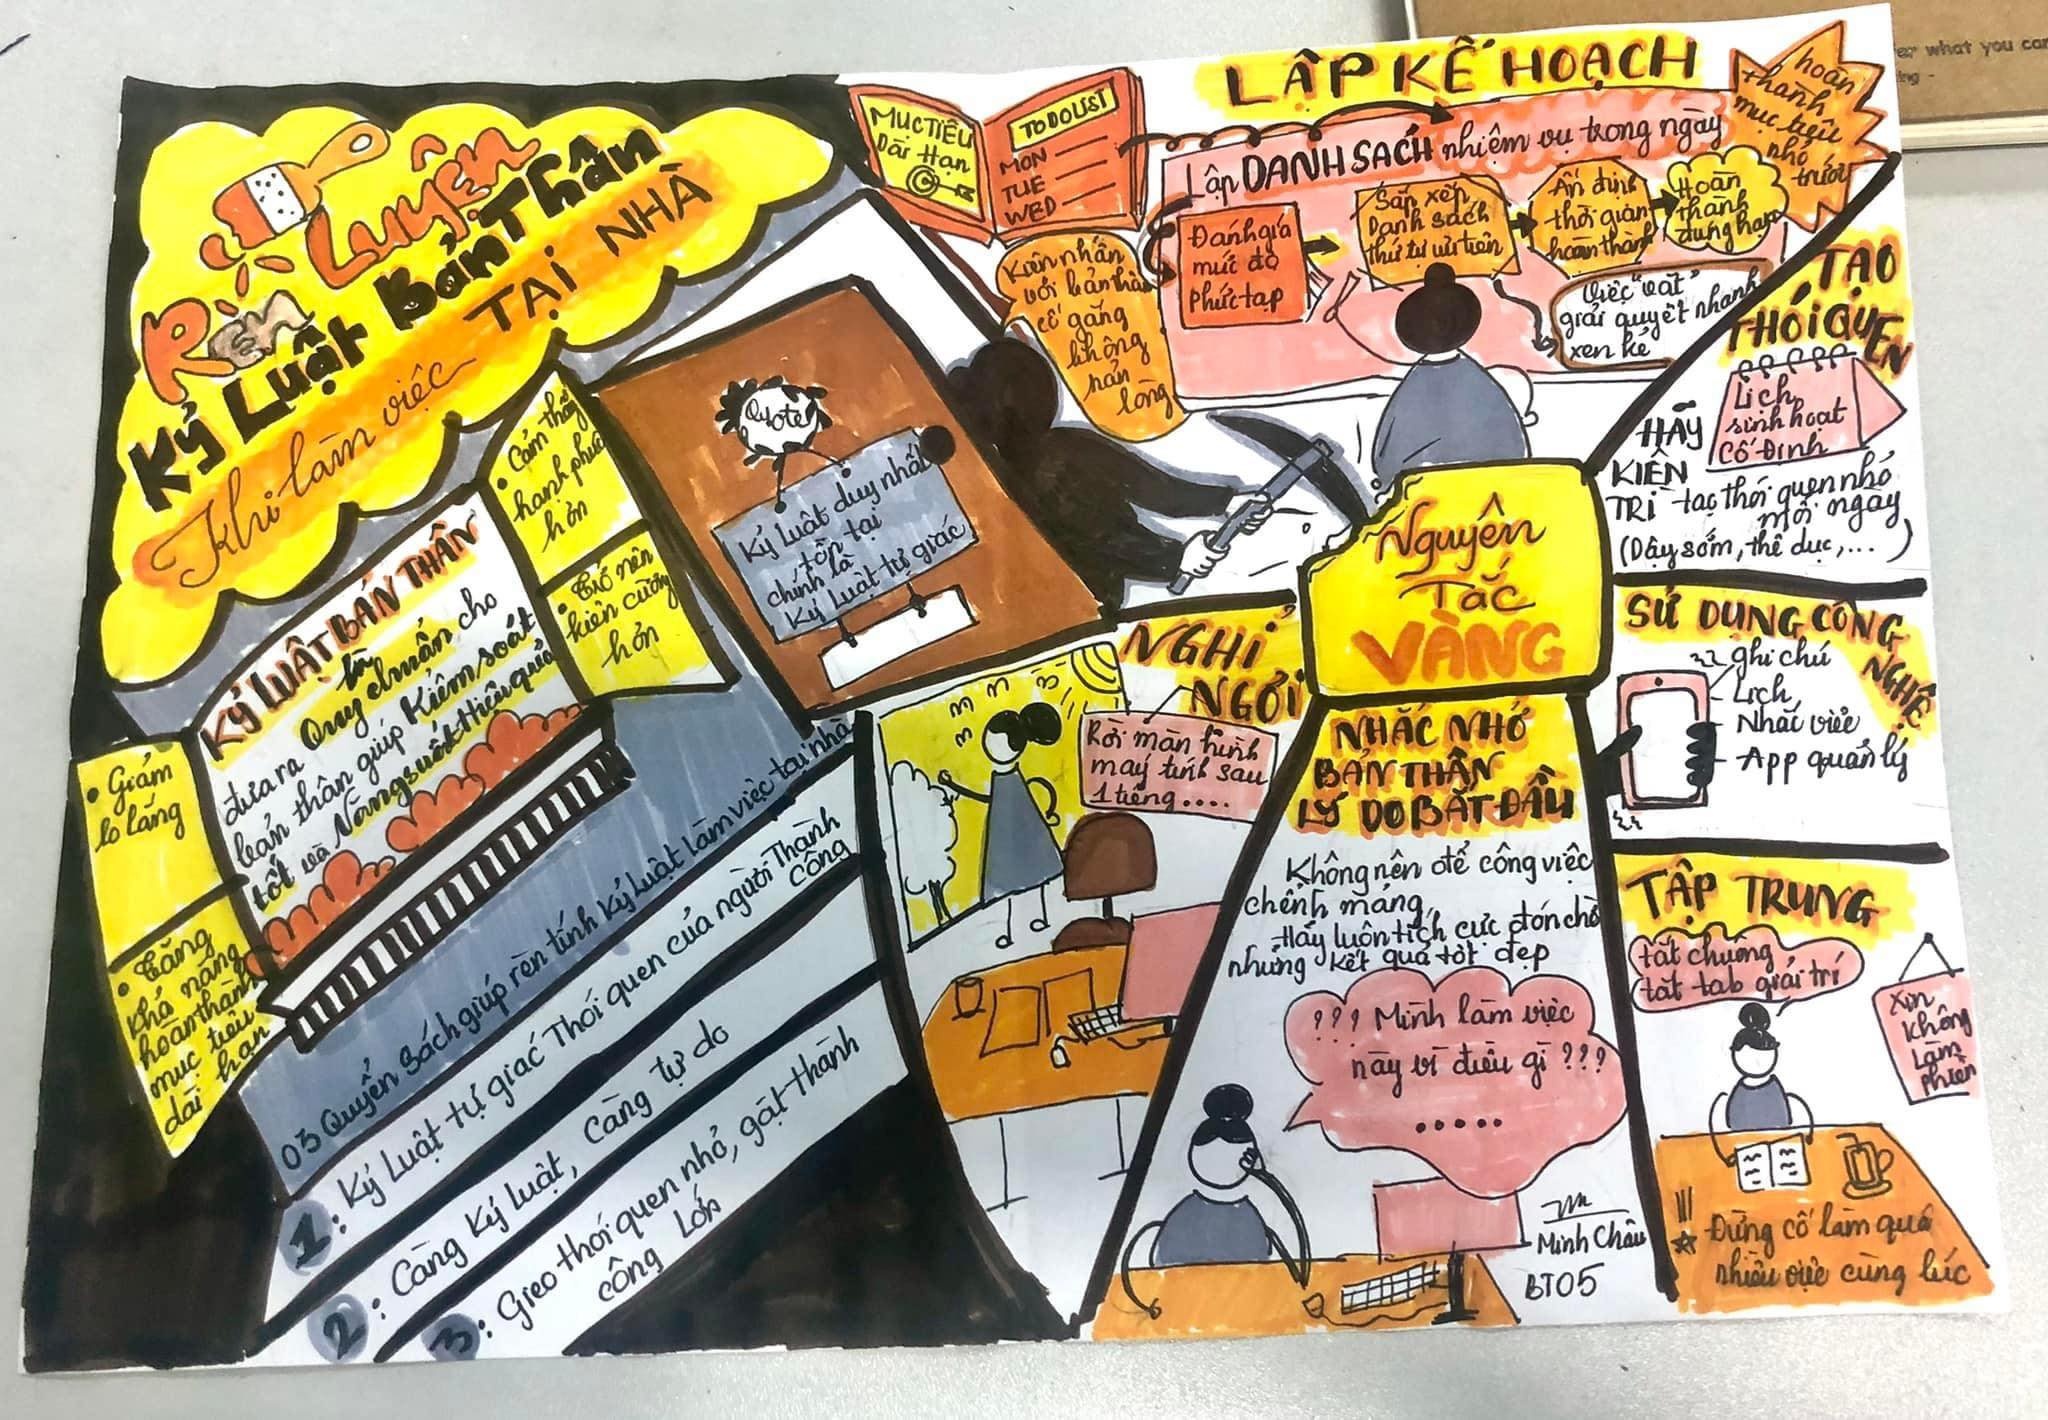 Rèn Luyện
Kỷ Luật Bản Thân
Khi làm việc TẠI NHÀ
KỶ LUẬT BẢN THÂN
là
đưa ra Quy chuẩn cho
bản thân giúp Kiểm soát
tốt và Năng suất hiệu quả
• Cảm thấy
hạnh phúc
hơn
• Trở nên
kiên cường
hơn
• Giảm
lo lắng
• Tăng
khả năng
hoàn thành
mục tiêu
dài hạn
Quotes
Kỷ luật duy nhất
tồn tại
chính là
Kỷ Luật tự giác
03 Quyển sách giúp rèn tính Kỷ luật làm việc tại nhà
1: Kỷ Luật tự giác Thói quen của người Thành
công
2: Càng Kỷ Luật, Càng tự do
3: Gieo thói quen nhỏ, gặt thành
công lớn
MỤC TIÊU
Dài Hạn
TO DO LIST
MON
TUE
WED
LẬP KẾ HOẠCH
Lập DANH SÁCH nhiệm vụ trong ngày
Đánh giá
mức độ
phức tạp
Sắp xếp
Danh sách
thứ tự ưu tiên
Ấn định
thời gian
hoàn thành
Hoàn
thành
đúng hạn
Việc "vặt"
giải quyết nhanh
xen kẽ
hoàn
thành
mục tiêu
nhỏ
trước
Kiên nhẫn
với bản thân
cố gắng
không
nản
lòng
Nguyên
Tắc
VÀNG
TẠO
THÓI QUEN
Lịch
sinh hoạt
cố định
HÃY
KIÊN
TRÌ tạo thói quen nhỏ
mỗi ngày
(Dậy sớm, thể dục,...)
SỬ DỤNG CÔNG
NGHỆ
ghi chú
Lịch
Nhắc việc
App quản lý
TẬP TRUNG
tắt chuông
tắt tab giải trí
Xin
không
làm
phiền
!!! Đừng cố làm quá
nhiều việc cùng lúc
NGHỈ
NGƠI
Rời màn hình
máy tính sau
1 tiếng....
NHẮC NHỞ
BẢN THÂN
LÝ DO BẮT ĐẦU
Không nên để công việc
chểnh mảng
Hãy luôn tích cực đón chờ
những kết quả tốt đẹp
??? Mình làm việc
này vì điều gì ???
.....
Minh Châu
BT05
what you can